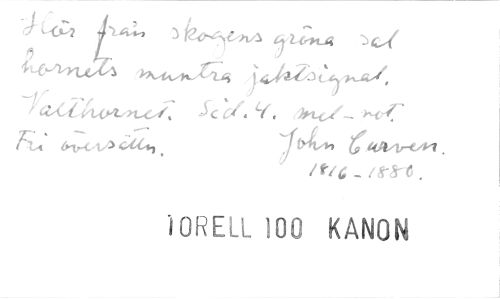 Hör från skogens gröna sal
hornets muntra jaktsignal.
Valthornet. Sid. 4. mel-not.
Fri översättn. John Curven.
1816-1880.
TORELL 100 KANON